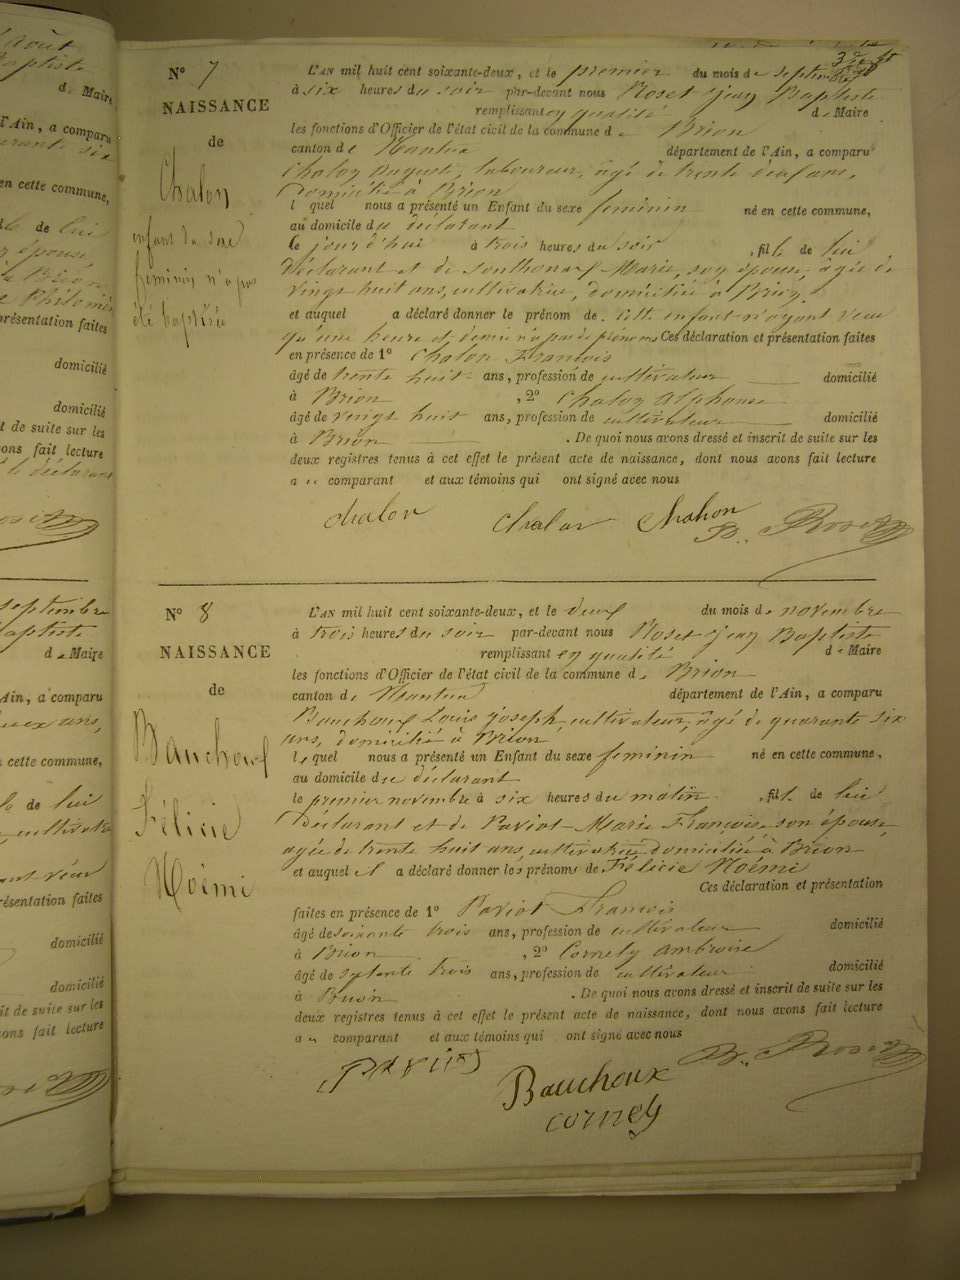 N° 7
NAISSANCE
de
Chalon
enfant du sexe
feminin n'a pas
été baptisée
L'AN mil huit cent soixante-deux, et le premier du mois de septembre
à six heures du soir par-devant nous Roset Jean Baptiste
remplissant en qualité de Maire
les fonctions d'Officier de l'état civil de la commune de Brion
canton de Nantua département de l'Ain, a comparu
Chalon Auguste, laboureur, âgé de trente ans,
domicilié à Brion
lequel nous a présenté un Enfant du sexe feminin né en cette commune,
au domicile du déclarant
le jour d'hui à trois heures du soir, fille de lui
déclarant et de Sonthonax Marie, son épouse, âgée de
vingt huit ans, cultivatrice, domiciliée à Brion.
et auquel a déclaré donner le prénom de. cette enfant n'ayant vécu
qu'une heure et demie n'a pas de prénoms Ces déclaration et présentation faites
en présence de 1° Chalon François
âgé de trente huit ans, profession de cultivateur domicilié
à Brion, 2° Chalon Alphonse
âgé de vingt huit ans, profession de cultivateur domicilié
à Brion. De quoi nous avons dressé et inscrit de suite sur les
deux registres tenus à cet effet le présent acte de naissance, dont nous avons fait lecture
au comparant et aux témoins qui ont signé avec nous
chalon Chalon Chalon B.. Roset
N° 8
NAISSANCE
de
Bauchoux
Félicie
Noémi
L'AN mil huit cent soixante-deux, et le deux du mois de novembre
à trois heures du soir par-devant nous Roset Jean Baptiste
remplissant en qualité de Maire
les fonctions d'Officier de l'état civil de la commune de Brion
canton de Nantua département de l'Ain, a comparu
Bauchoux Louis Joseph, cultivateur, âgé de quarante six
ans, domicilié à Brion
lequel nous a présenté un Enfant du sexe feminin né en cette commune,
au domicile du déclarant
le premier novembre à six heures du matin, fille de lui
Déclarant et de Paviot Marie Françoise son épouse,
agée de trente huit ans, cultivatrice domiciliée à Brion
et auquel il a déclaré donner les prénoms de Félicie Noémi
Ces déclaration et présentation
faites en présence de 1° Paviot François
âgé de soixante trois ans, profession de cultivateur domicilié
à Brion, 2° Cornely Ambroise
âgé de septante trois ans, profession de cultivateur domicilié
à Brion. De quoi nous avons dressé et inscrit de suite sur les
deux registres tenus à cet effet le présent acte de naissance, dont nous avons fait lecture
au comparant et aux témoins qui ont signé avec nous
Paviot Bauchoux B.. Roset
cornely